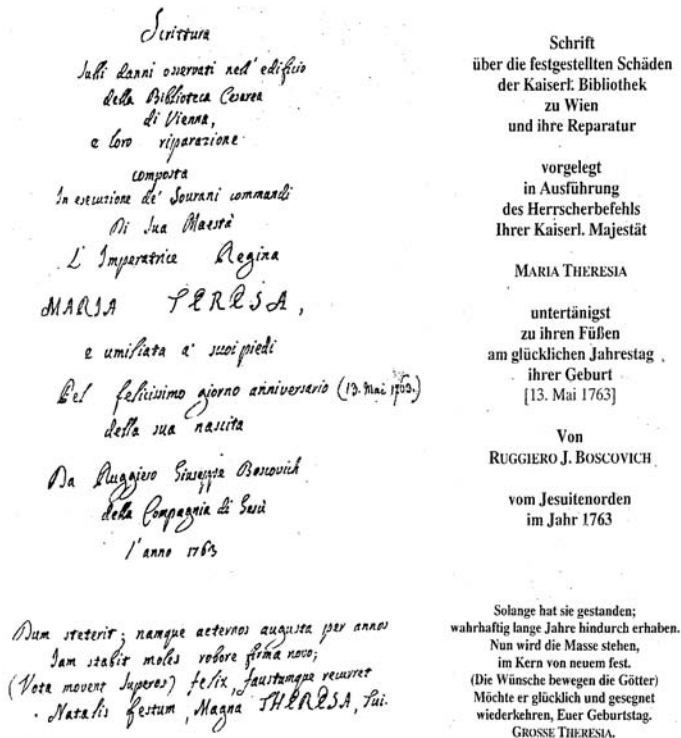 Scrittura
Sulli danni osservati nell' edificio
della Biblioteca Cesarea
di Vienna,
e loro riparazione
composta
In esecuzione de' Sourani commandi
Di Sua Maestà
L' Imperatrice Regina
MARIA TERESA,
e umiliata a' suoi piedi
Pel felicissimo giorno anniversario (13. Mai 1763.)
della sua nascita
Da Ruggiero Giuseppe Boscovich
della Compagnia di Gesù
l'anno 1763
Dum steterit; namque aeternos augusta per annos
Iam stabit moles robore firma novo;
(Vota movent Superos) felix, faustumque recurret
Natalis festum, Magna THERESA, Tui.
Schrift
über die festgestellten Schäden
der Kaiserl. Bibliothek
zu Wien
und ihre Reparatur
vorgelegt
in Ausführung
des Herrscherbefehls
Ihrer Kaiserl. Majestät
MARIA THERESIA
untertänigst
zu ihren Füßen
am glücklichen Jahrestag
ihrer Geburt
[13. Mai 1763]
Von
RUGGIERO J. BOSCOVICH
vom Jesuitenorden
im Jahr 1763
Solange hat sie gestanden;
wahrhaftig lange Jahre hindurch erhaben.
Nun wird die Masse stehen,
im Kern von neuem fest.
(Die Wünsche bewegen die Götter)
Möchte er glücklich und gesegnet
wiederkehren, Euer Geburtstag.
GROSSE THERESIA.